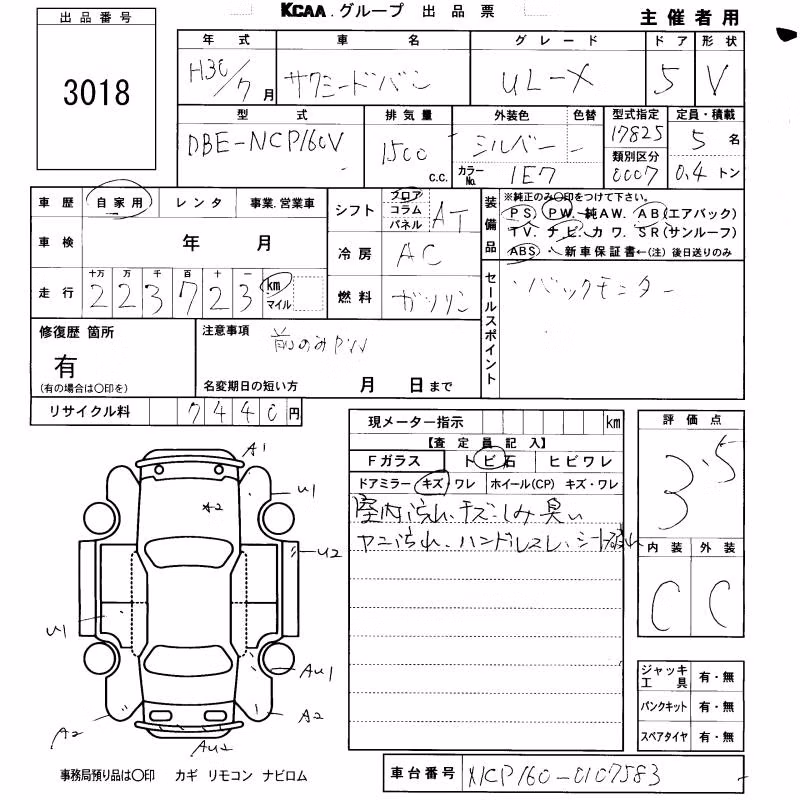 KCAA.グループ 出品票
主催者用
出品番号
3018
年式 車名 グレード ドア 形状
H30/7月 サクシードバン UL-X 5 V
型式 排気量 外装色 色替 型式指定 定員・積載
DBE-NCP160V 1500 c.c. シルバー - 17825 5名
カラーNo. 1E7 類別区分 0007 0.4トン
車歴 自家用 レンタ 事業.営業車
車検 年 月
走行 十万 万 千 百 十 一
223723 km マイル
シフト フロア コラム パネル AT
冷房 AC
燃料 ガソリン
装備品 ※純正のみ○印をつけて下さい。
PS. PW. 純AW. AB(エアバック)
TV. ナビ. カワ. SR(サンルーフ)
ABS. 新車保証書←(注)後日送りのみ
セールスポイント
・バックモニター
修復歴 箇所
有
(有の場合は○印を)
注意事項
前のみPW
名変期日の短い方 月 日まで
リサイクル料 7440円
現メーター指示 km
【査定員記入】
Fガラス トビ石 ヒビワレ
ドアミラー キズ・ワレ ホイール(CP) キズ・ワレ
室内汚れ、キズ、しみ 臭い
ヤニ汚れ、ハンドルスレ、シート破れ
評価点
3.5
内装 外装
C C
A1
U1
A2
U2
U1
AU1
A2
A2
AU2
ジャッキ工具 有・無
パンクキット 有・無
スペアタイヤ 有・無
事務局預り品は○印 カギ リモコン ナビロム
車台番号 NCP160-0107583